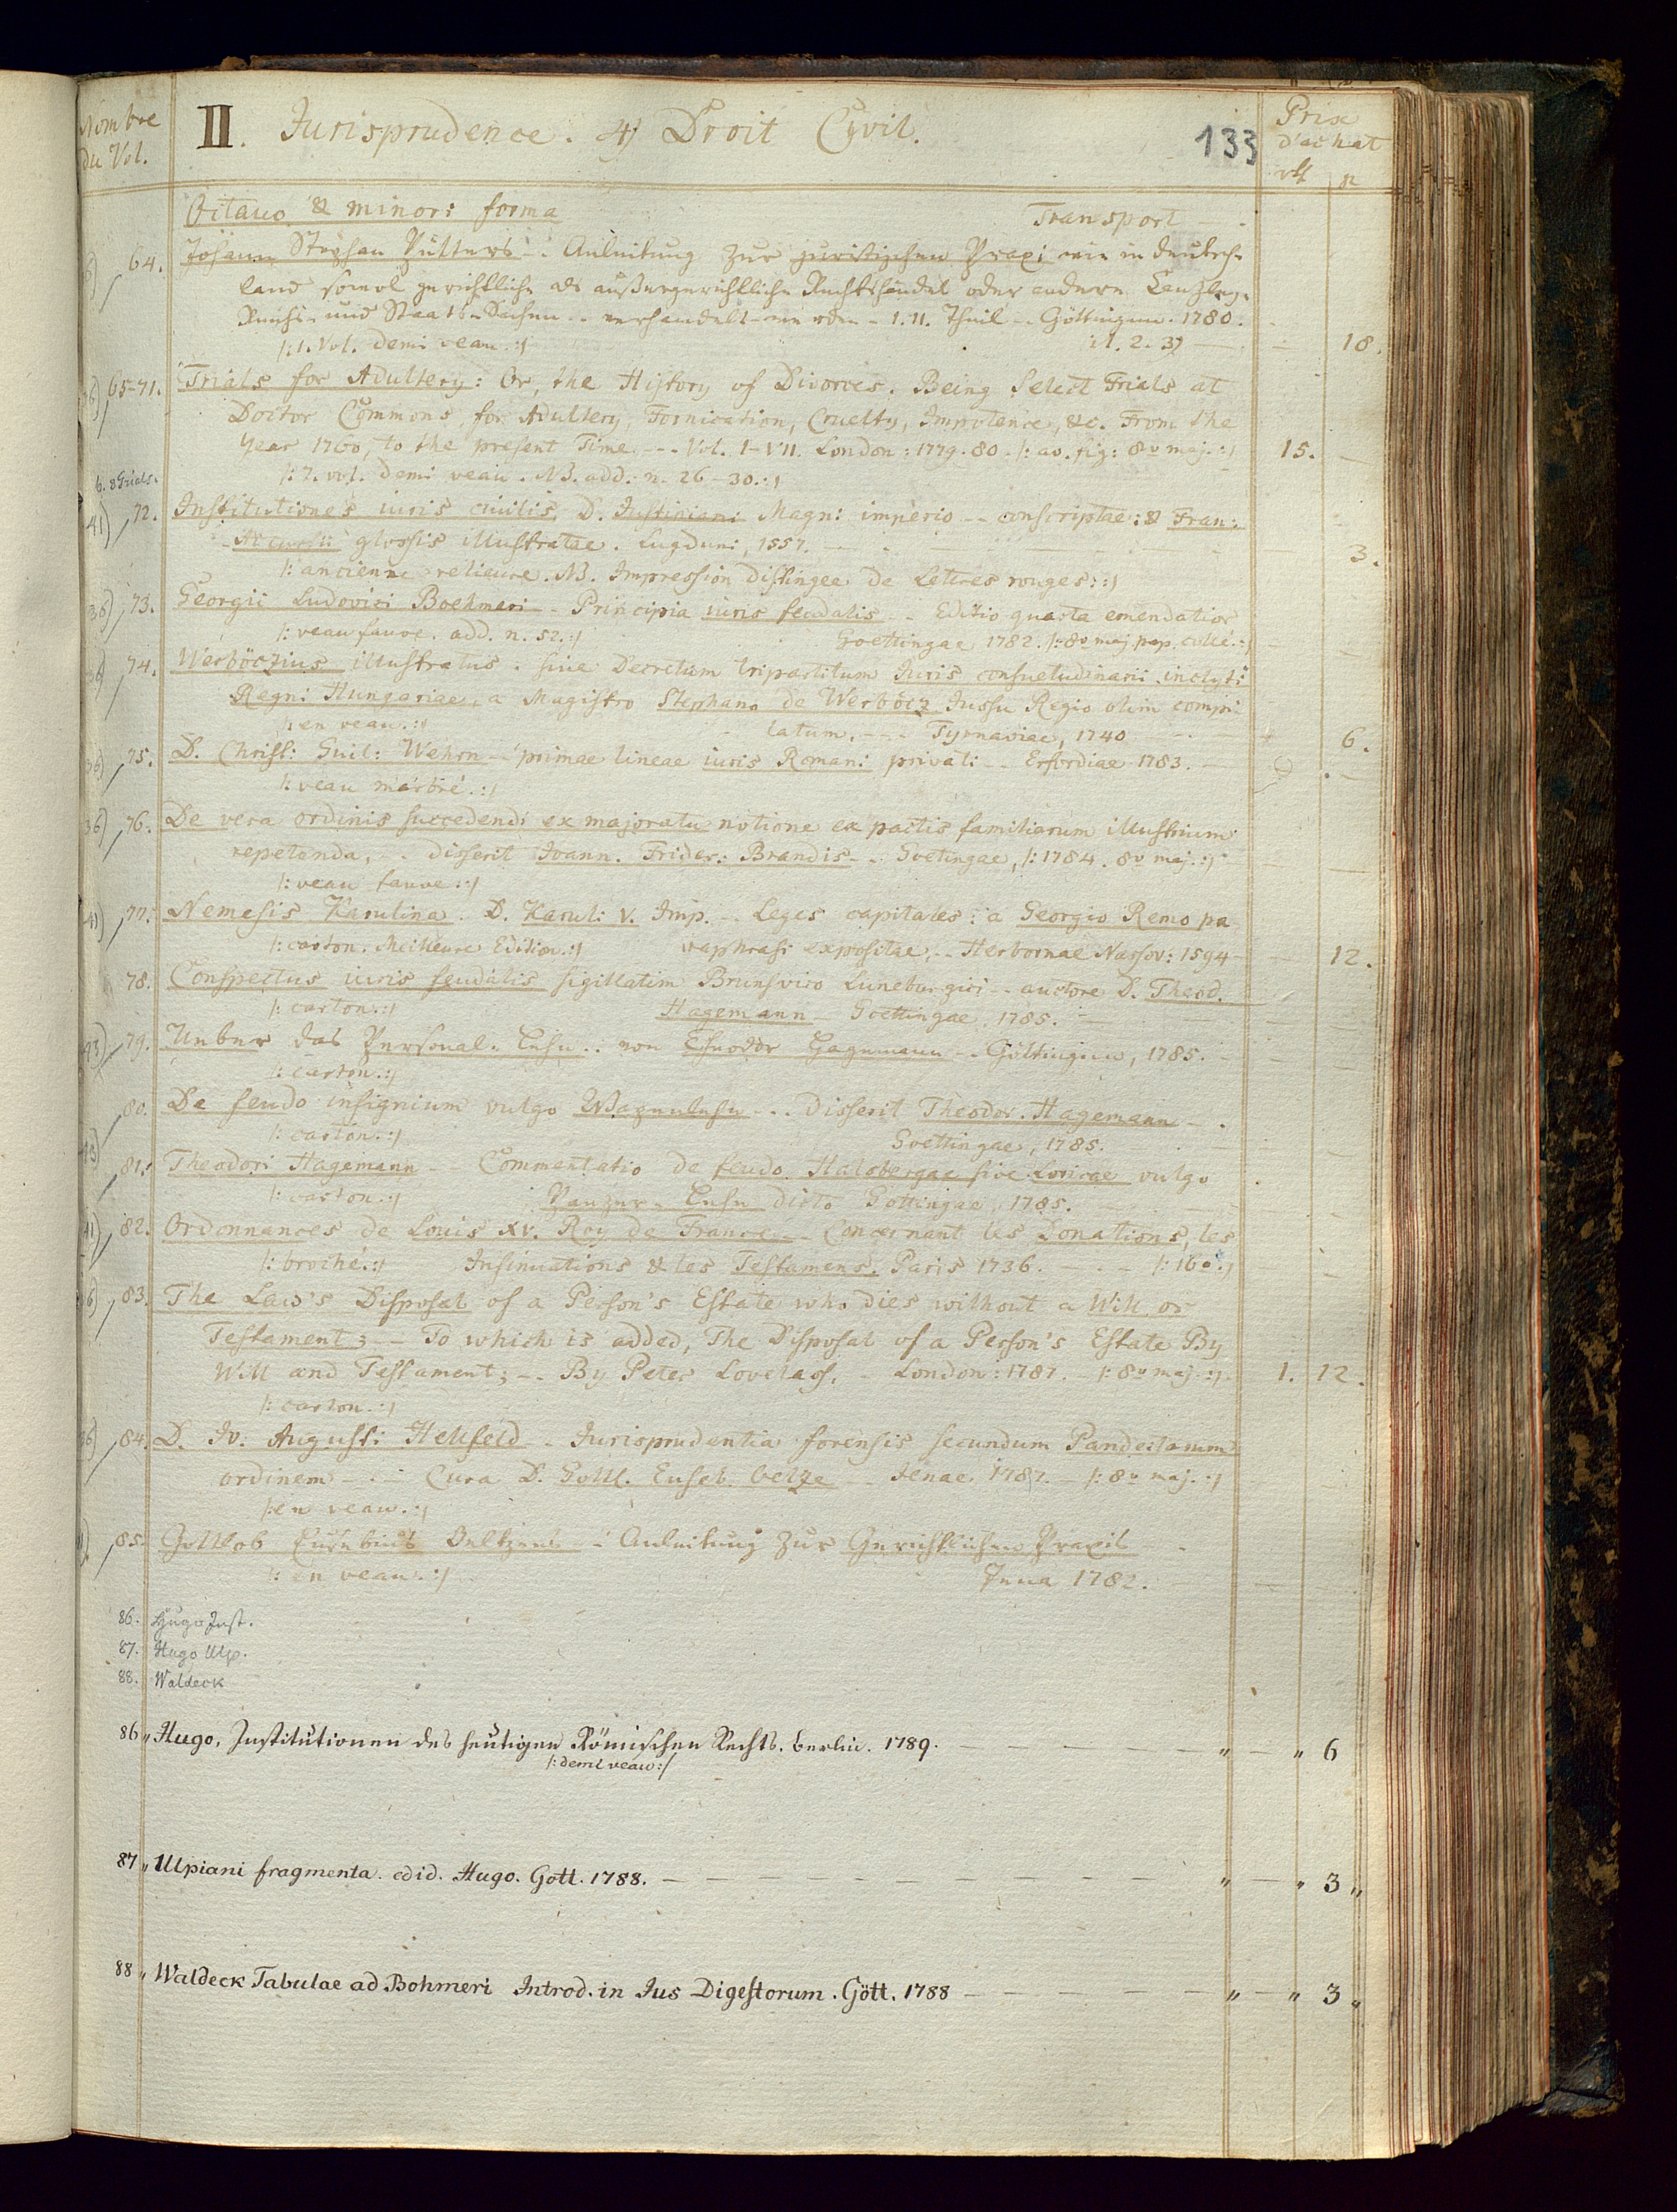 Nombre du Vol.
II. Jurisprudence. 4) Droit Cyvil.
133
Prix d'achat
Octavo & minori forma Transport
64. Johann Stephan Pütters -. Anleitung zur juristischen Praxi wie in Deutsch-
land sowol gerichtliche als außergerichtliche Rechtshändel oder andere Canzley-
Reichs- und Staats-Sachen -- verhandelt werden - I. II. Theil -- Göttingen. 1780. -
/: 1. Vol. demi veau :/ 18.
65-71. Trials for Adultery: Or, the History of Divorces. Being Select Trials at
Doctor Commons, for Adultery, Fornication, Cruelty, Impotence, &c. From the
Year 1760, to the present Time. --- Vol. I-VII. London: 1779-80. /: av. fig: 8v maj. :/ 15. -
/: 7. vol. demi veau. NB. add. n. 26-30. :/
41) 72. Institutiones iuris civilis D. Justiniani Magni imperio -- conscriptae: & Fran:
Accursii glossis illustratae. Lugduni, 1557. - 3.
/: ancienne relieure. NB. Impression distingee de Letres rouges: :/
36) 73. Georgii Ludovici Boehmeri - Principia iuris feudalis -- Editio quarta emendatior
/: veau fauve. add. n. 52. :/ Goettingae 1782. /: 8v maj. pap. collé. :/
74. Werböczius illustratus. sive Decretum tripartitum Juris consuetudinarii inclyti
Regni Hungariae, a Magistro Stephano de Werböcz Jussu Regio olim compi-
/: en veau. :/ latum. --- Tyrnaviae, 1740 6.
36) 75. D. Christ: Guil: Wehrn - primae lineae iuris Romani privati -- Erfordiae 1783. -
/: veau marbré. :/
36) 76. De vera ordinis succedendi ex majoratu notione ex pactis familiarum illustrium
repetenda, -- disserit Joann. Frider: Brandis -- Goetingae, /: 1784. 8v maj. :/
/: veau fauve. :/
41) 77. Nemesis Karulina. D. Karuli V. Imp. -- Leges capitales: a Georgio Remo pa
/: carton. Meilleure Edition. :/ raphrasi expositae. -- Herbornae Nassov: 1594 - 12.
78. Conspectus iuris feudalis sigillatim Brunsvico Luneburgici -- auctore D. Theod.
/: carton. :/ Hagemann - Goettingae. 1785. -
43) 79. Ueber das Personal-Lehn .. von Theodor Hagemann -- Göttingen, 1785. -
/: carton. :/
80. De feudo insignium vulgo Wapenlehn -.. disserit Theodor. Hagemann -.
/: carton. :/ Goettingae, 1785.
43) 81. Theodori Hagemann -- Commentatio de feudo Halsbergae sive Loricae vulgo
/: carton. :/ Panzer-Lehn dicto Gottingae, 1785.
41) 82. Ordonnances de Louis XV. Roy de France -- Concernant les Donations, les
/: broché. :/ Insinuations & les Testamens. Paris 1736. --- /: 16o. :/
83. The Law's Disposal of a Person's Estate who dies without a Will or
Testament; -- To which is added, The Disposal of a Person's Estate By
Will and Testament; -- By Peter Lovelass. - London: 1787. - /: 8v maj. :/ 1. 12.
/: carton. :/
36) 84. D. Jo. Augusti Hellfeld - Jurisprudentia forensis secundum Pandectarum
ordinem -.- Cura D. Gottl. Euseb. Oelze - Jenae 1787. - /: 8v maj. :/
/: en veau. :/
85. Gottlob Eusebius Oeltzens - Anleitung zur Gerichtlichen Praxis -
/: en veau. :/ Jena 1782.
86. Hugo Inst.
87. Hugo Ulp.
88. Waldeck
86 " Hugo, Institutionen des heutigen Römischen Rechts. berlin. 1789. - " - " 6
/: demi veau :/
87 " Ulpiani fragmenta. edid. Hugo. Gott. 1788. - " - " 3 "
88 " Waldeck Tabulae ad Bohmeri Introd. in Jus Digestorum. Gött. 1788 - " - " 3 "